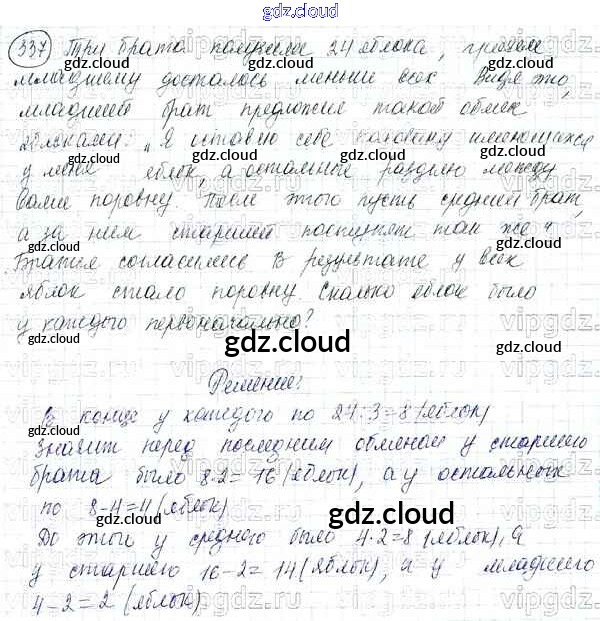 gdz.cloud
337 Три брата получили 24 яблока, причем
младшему досталось меньше всех Видя это,
младший брат предложил такой обмен
яблоками: „Я оставлю себе половину имеющихся
у меня яблок, а остальные разделю между
вами поровну. После этого пусть средний брат,
а за ним старший поступят так же".
Братья согласились В результате у всех
яблок стало поровну. Сколько яблок было
у каждого первоначально?
Решение:
В конце у каждого по 24:3=8 (яблок)
Значит перед последним обменом у старшего
брата было 8·2=16 (яблок), а у остальных
по 8-4=4 (яблок)
До этого у среднего было 4·2=8 (яблок), а
у старшего 16-2=14 (яблок), а у младшего
4-2=2 (яблок)